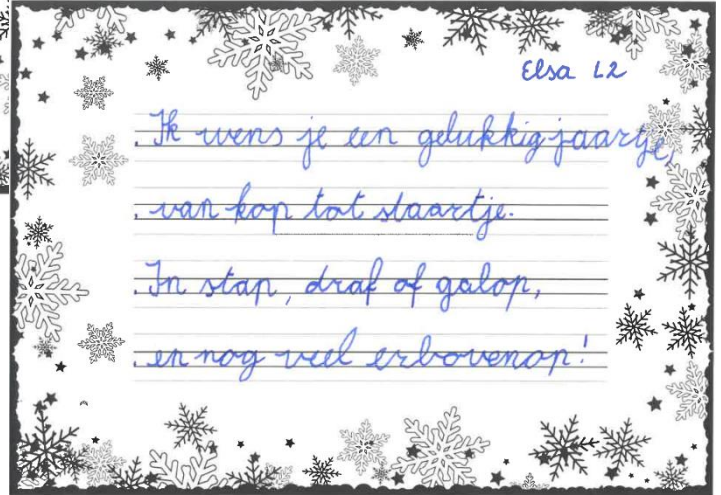 Elsa L2
Ik wens je een gelukkig jaartje,
van kop tot staartje.
In stap, draf of galop,
en nog veel erbovenop!